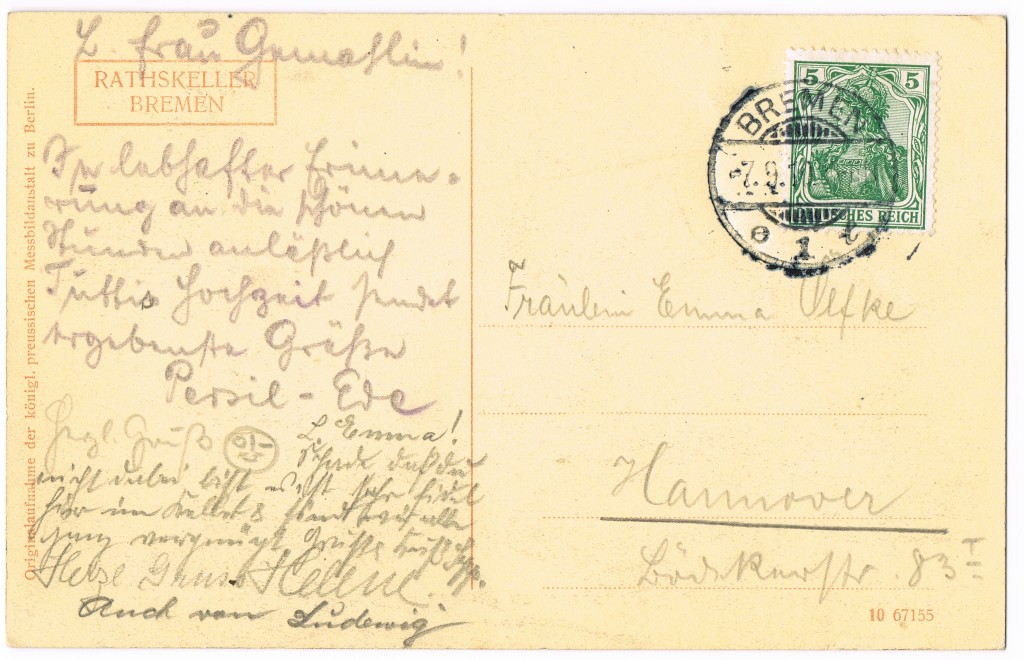 L. Frau Gemahlin!
RATHSKELLER
BREMEN
In lebhafter Erinne-
rung an die schönen
Stunden anläßlich
Tuttis Hochzeit sendet
ergebenste Grüße
Persil-Ede
Herzl. Gruß
L. Emma!
Schade daß du
nicht dabei bist es ist sehr fidel
hier im Keller & sind wir alle
ganz vergnügt Gruß
Herze Gruss Helene.
Auch von Ludewig
Originalaufnahme der königl. preussischen Messbildanstalt zu Berlin.
5 5
DEUTSCHES REICH
BREMEN
7.9.1
e 1 t
Fräulein Emma Oelfke
Hannover
Bödekerstr. 83 I
10 67155